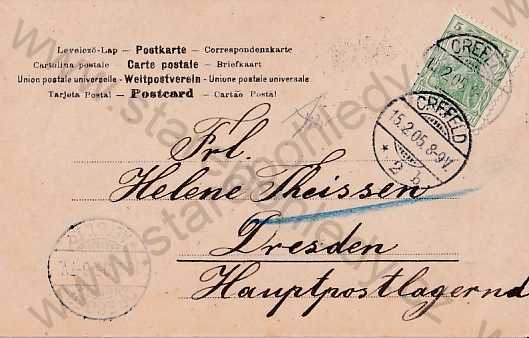 Levelező-Lap — Postkarte — Correspondenzkarte
Cartolina postale — Carte postale — Briefkaart
Union postale universelle — Weltpostverein — Unione postale universale
Tarjeta Postal — Postcard — Cartão Postal
5 5
CREFELD
CREFELD
15.2.05. 8-9V.
* 2 b
Frl.
Helene Theissen
Dresden
Hauptpostlagernd